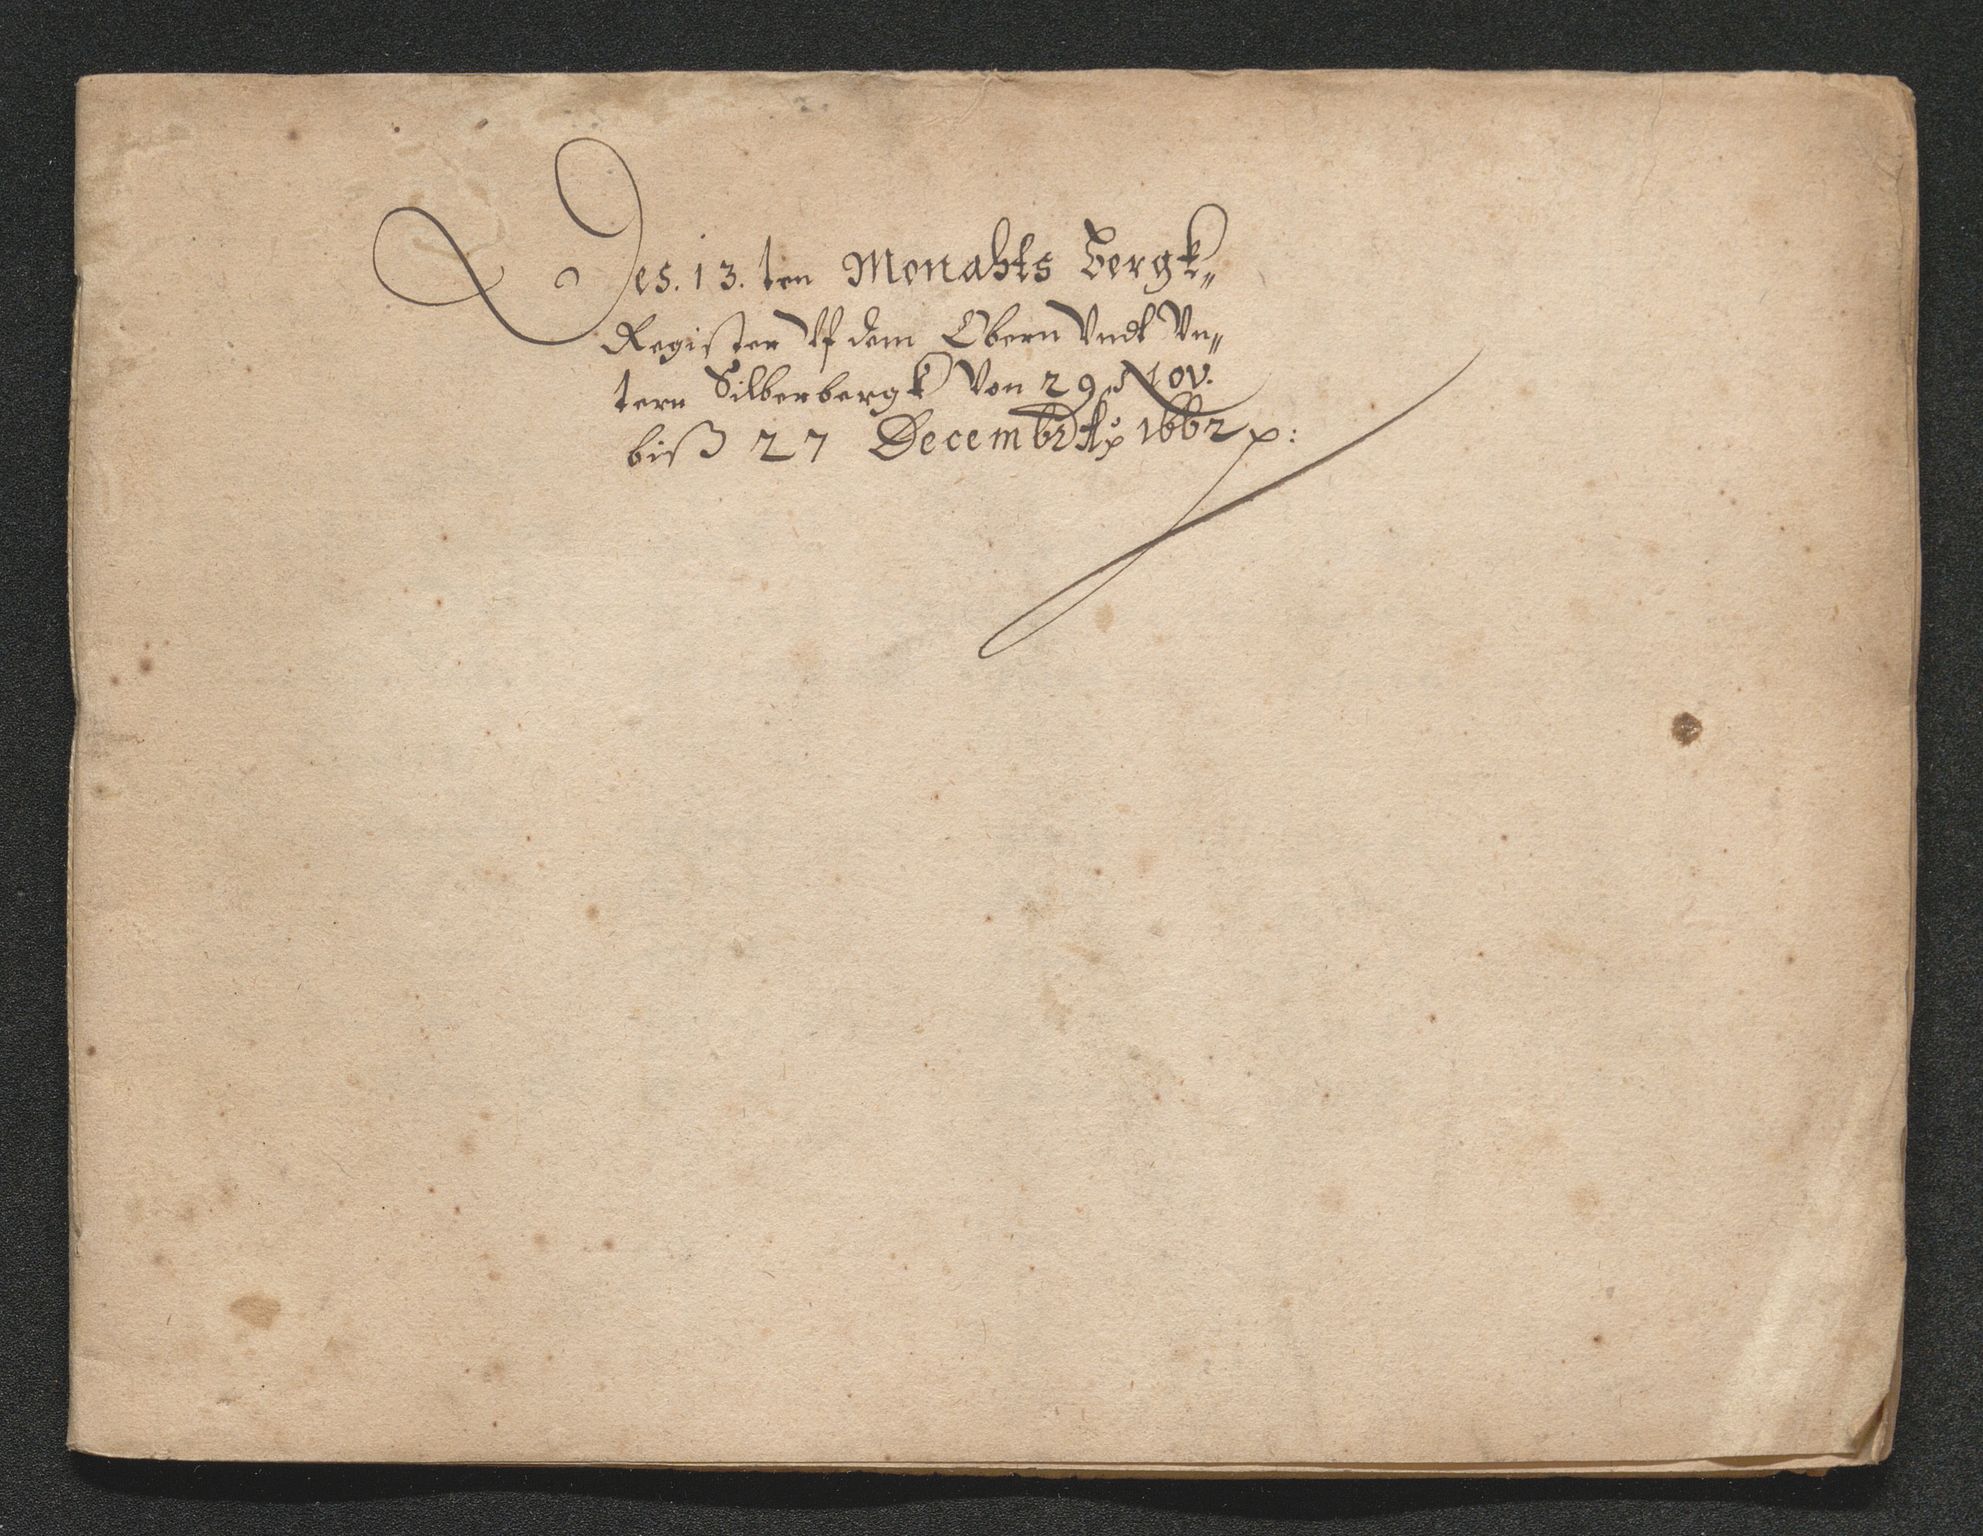 Des. 13. ten Monahts Bergk„
Register Uf dem Obern Vndt Vn„
tern Silberbergk Von 29. Nov.
biß 27 Decembr: Ao 1662 p: